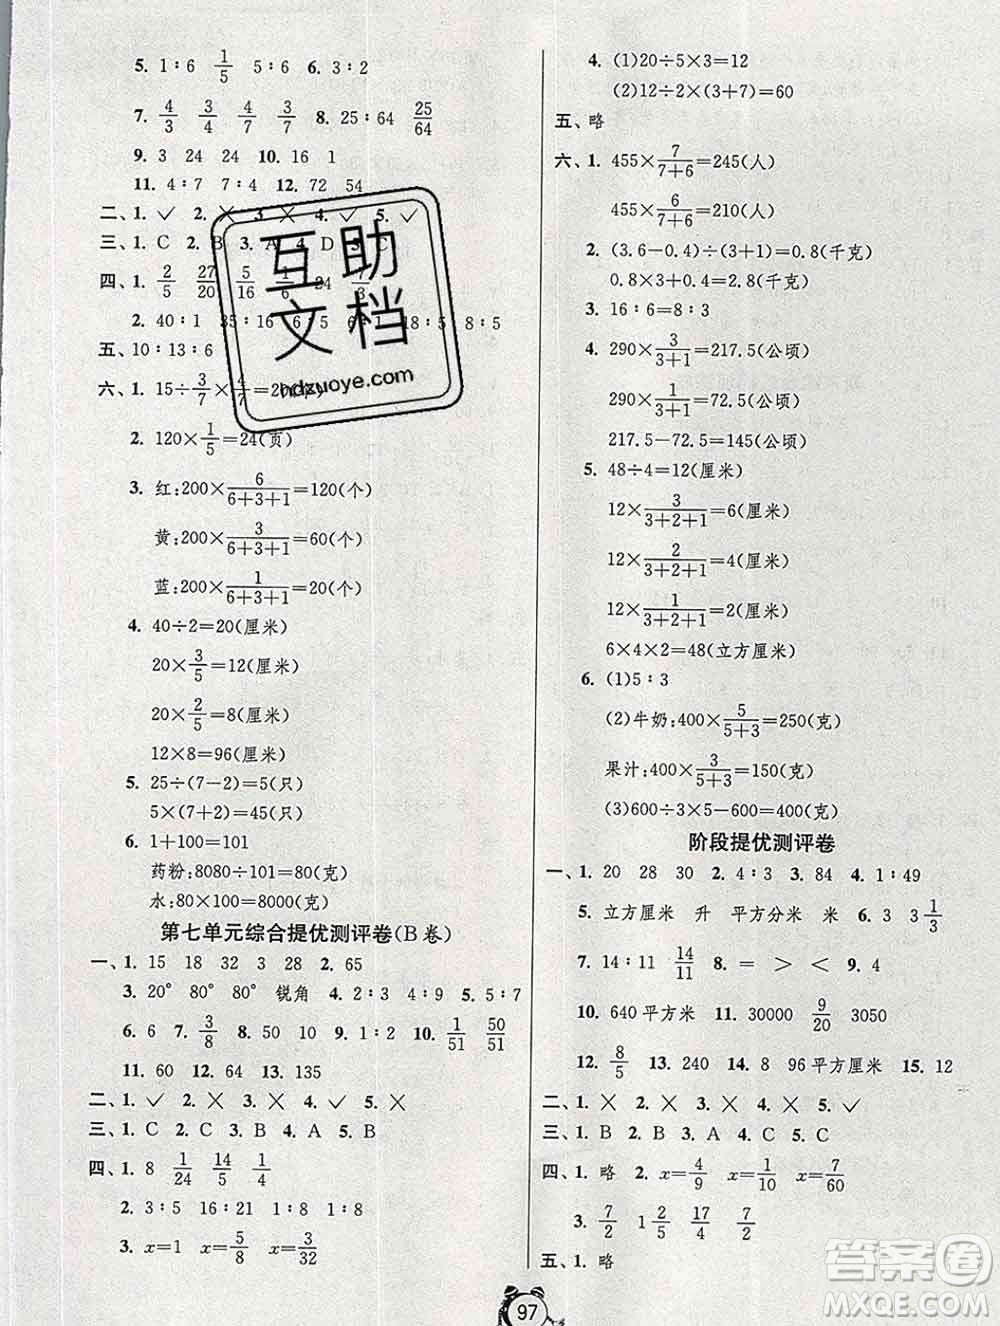 5. 1∶6 1/5 5∶6 6. 3∶2
7. 4/3 3/4 4/7 3/7 8. 25∶64 25/64
9. 3 24 24 10. 16 1
11. 4∶7 4∶7 12. 72 54
二、1. ✓ 2. ╳ 3. ╳ 4. ✓ 5. ✓
三、1. C 2. B 3. A 4. D 5. C
四、1. 2/5 27/20 5/16 1/6 24 7/3
2. 40∶1 35∶16 6∶5 6∶1 18∶5 8∶5
五、10∶13∶6
六、1. 15÷3/7×4/7=20
2. 120×1/5=24(页)
3. 红:200×6/(6+3+1)=120(个)
黄:200×3/(6+3+1)=60(个)
蓝:200×1/(6+3+1)=20(个)
4. 40÷2=20(厘米)
20×3/5=12(厘米)
20×2/5=8(厘米)
12×8=96(厘米)
5. 25÷(7-2)=5(只)
5×(7+2)=45(只)
6. 1+100=101
药粉:8080÷101=80(克)
水:80×100=8000(克)
第七单元综合提优测评卷(B卷)
一、1. 15 18 32 3 28 2. 65
3. 20° 80° 80° 锐角 4. 2∶3 4∶9 5. 5∶7
6. 6 7. 3/8 8. 50 10 9. 1∶2 10. 1/51 50/51
11. 60 12. 64 13. 135
二、1. ✓ 2. ╳ 3. ╳ 4. ✓ 5. ╳
三、1. C 2. C 3. B 4. A 5. B
四、1. 8 1/24 14/5 1/4
2. 3∶5 16∶21 1∶8 1∶8
3. x=1 x=5/8 x=3/32
4. (1)20÷5×3=12
(2)12÷2×(3+7)=60
五、略
六、1. 455×7/(7+6)=245(人)
455×6/(7+6)=210(人)
2. (3.6-0.4)÷(3+1)=0.8(千克)
0.8×3+0.4=2.8(千克)
3. 16∶6=8∶3
4. 290×3/(3+1)=217.5(公顷)
290×1/(3+1)=72.5(公顷)
217.5-72.5=145(公顷)
5. 48÷4=12(厘米)
12×3/(3+2+1)=6(厘米)
12×2/(3+2+1)=4(厘米)
12×1/(3+2+1)=2(厘米)
6×4×2=48(立方厘米)
6. (1)5∶3
(2)牛奶:400×5/(5+3)=250(克)
果汁:400×3/(5+3)=150(克)
(3)600÷3×5-600=400(克)
阶段提优测评卷
一、1. 20 28 30 2. 4∶3 3. 84 4. 1∶49
5. 立方厘米 升 平方分米 米 6. 3 3 1/3
7. 14∶11 14/11 8. = > < 9. 4
10. 640平方米 11. 30000 9/20 3050
12. 8/5 13. 240 14. 8 96平方厘米 15. 12
二、1. ╳ 2. ╳ 3. ╳ 4. ╳ 5. ✓
三、1. B 2. B 3. A 4. C 5. C
四、1. 略 2. x=4/9 x=1/10 x=7/60
3. 7/2 1 2/5 17/4 7/2
五、1. 略
97
互助文档
hdzuoye.com
答案圈
MXQE.COM